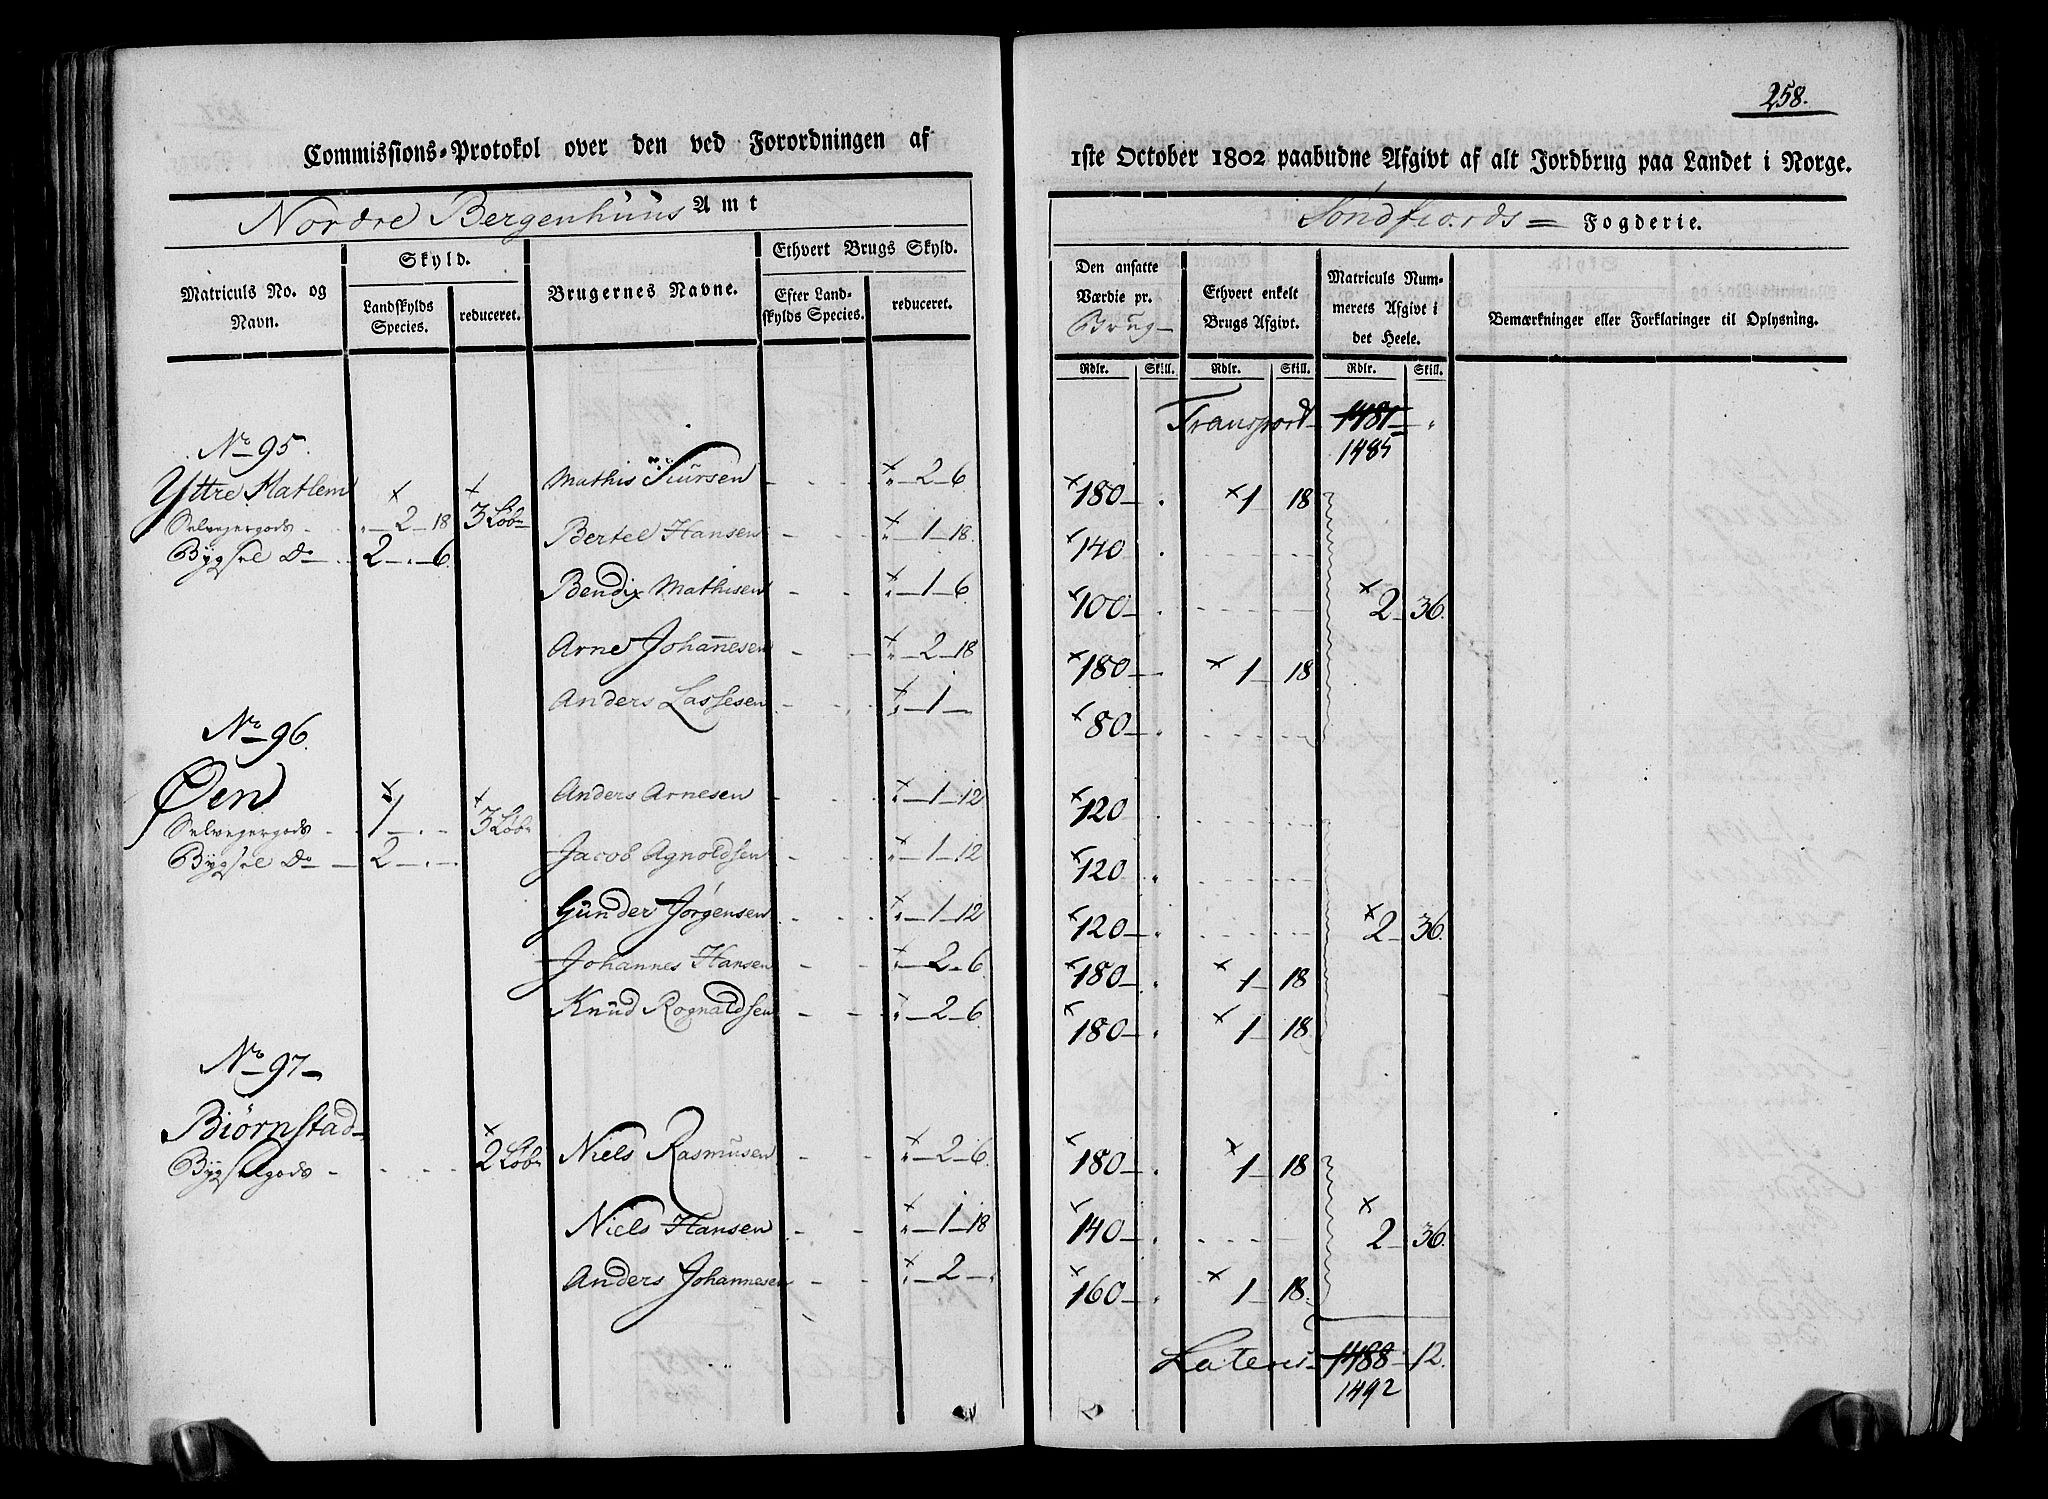 258.
Commissions-Protokol over den ved Forordningen af 1ste October 1802 paabudne Afgivt af alt Jordbrug paa Landet i Norge.
Nordre Bergenhuus Amt
Søndfiords Fogderie.
Matriculs No. og Navn.
Skyld.
Landskylds Species.
reduceret.
Brugernes Navne.
Ethvert Brugs Skyld.
Efter Landskylds Species.
reduceret.
Den ansatte Værdie pr. Brug
Ethvert enkelt Brugs Afgivt.
Matriculs Nummerets Afgivt i det Heele.
Bemærkninger eller Forklaringer til Oplysning.
Rdlr. Skill. Rdlr. Skill. Rdlr. Skill.
Transport 1481
1485
No 95.
Yttre Hatlem
Selveyergods 2 18 3 Løb
Bygsel Do 2 6
Mathis 2 6 180 1 18
Bertel Hansen 1 18 140
Bendix Mathisen 1 6 100 2 36.
Arne Johanesen 2 18 180 1 18
Anders Lassesen 1 80
No 96.
Øen
Selveyergods 1 3 Løb
Bygsel Do 2
Anders Arnesen 1 12 120
Jacob Agnoldsen 1 12 120
Gunder Jørgensen 1 12 120 2 36.
Johannes Hansen 2 6 180 1 18
Knud Rognaldsen 2 6 180 1 18
No 97
Biørnstad
Bygselgods 2 Løb
Niels Rasmusen 2 6 180 1 18
Niels Hansen 1 18 140 2 36.
Anders Johannesen 2 160 1 18
Lateris 1488 12.
1492